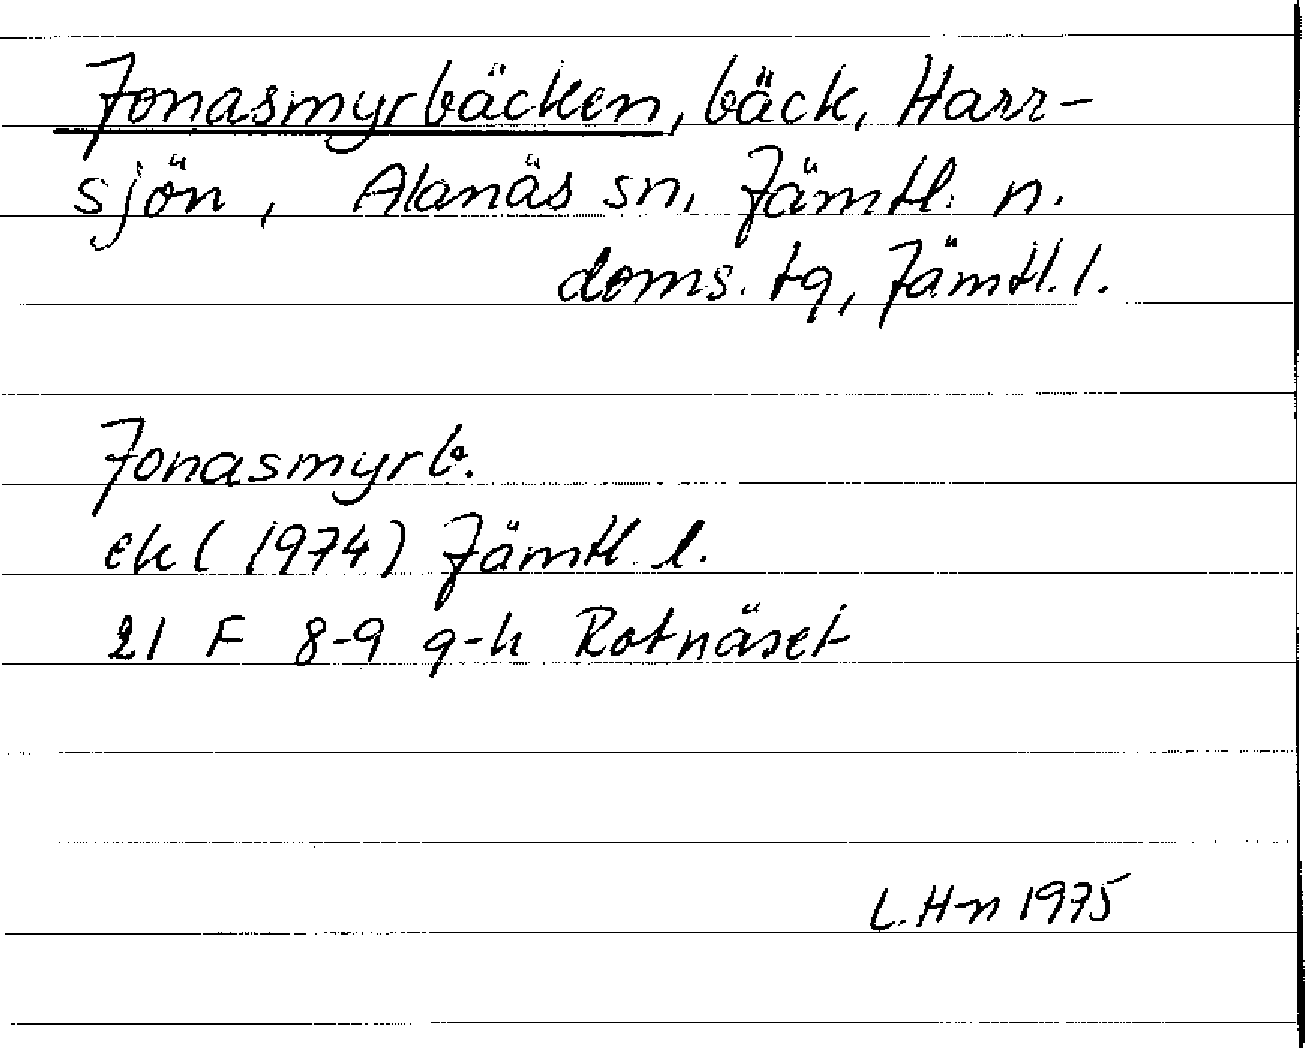 Jonasmyrbäcken, bäck, Harr-
sjön, Alanäs sn, Jämtl. n.
doms. tg, Jämtl. l.
Jonasmyrb.
ek (1974) Jämtl. l.
21 F 8-9 g-h Rotnäset
L. H-n 1975